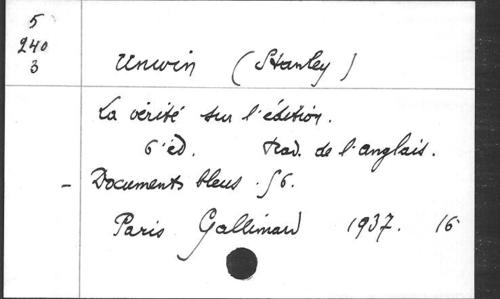 5
240
3
Unwin (Stanley)
La vérité sur l'édition.
6 éd. trad. de l'anglais.
- Documents bleus. 56.
Paris Gallimard 1937. 16